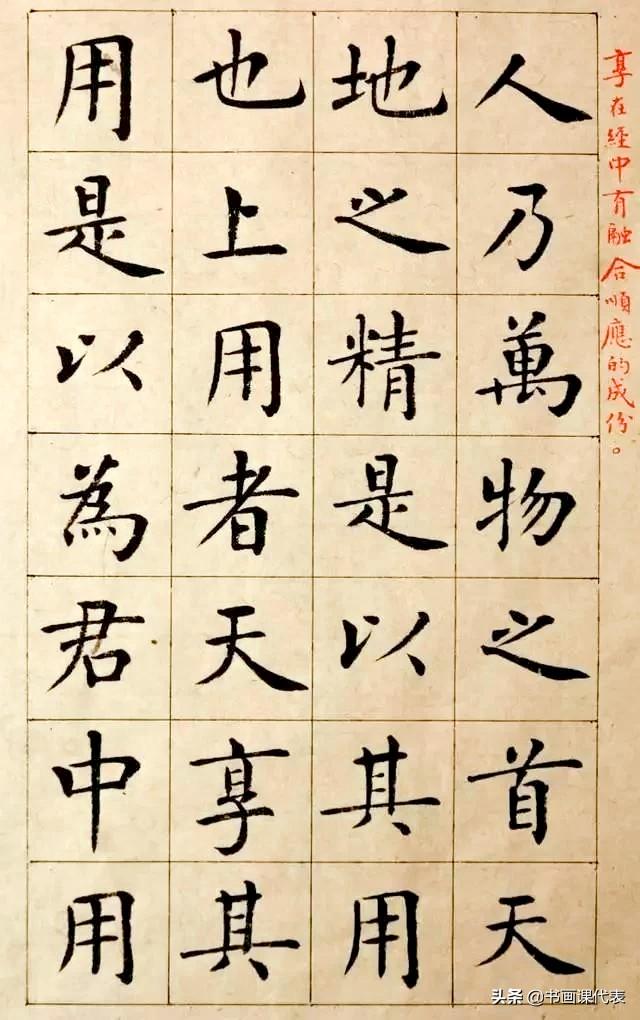 享在經中有融合順應的成份。
人乃萬物之首天
地之精是以其用
也上用者天享其
用是以為君中用
头条 @书画课代表